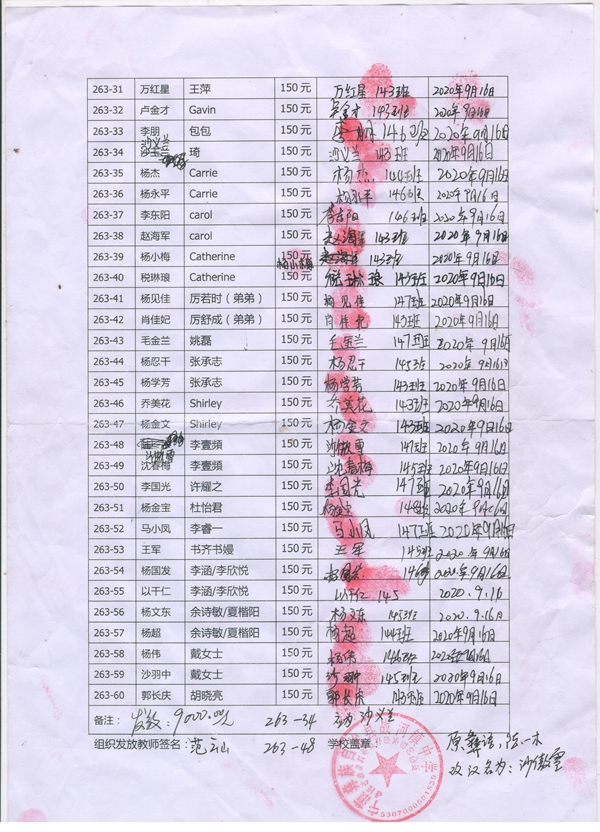 263-31 万红星 王萍 150 元 万红星 143班 2020年9月16日
263-32 卢金才 Gavin 150 元 金才 143班 2020年9月16日
263-33 李朋 包包 150 元 李朋 146班 2020年9月16日
263-34 沙义兰 琦 150 元 沙义兰 143班 2020年9月16日
263-35 杨杰 Carrie 150 元 杨杰 144班 2020年9月16日
263-36 杨永平 Carrie 150 元 杨永平 146班 2020年9月16日
263-37 李东阳 carol 150 元 李东阳 146班 2020年9月16日
263-38 赵海军 carol 150 元 赵海军 143班 2020年9月16日
263-39 杨小梅 Catherine 150 元 杨小梅 143班 2020年9月16日
263-40 税琳琅 Catherine 150 元 税琳琅 143班 2020年9月16日
263-41 杨见佳 厉若时（弟弟） 150 元 杨见佳 147班 2020年9月16日
263-42 肖佳妃 厉舒成（弟弟） 150 元 肖佳妃 143班 2020年9月16日
263-43 毛金兰 姚磊 150 元 毛金兰 147班 2020年9月16日
263-44 杨忍干 张承志 150 元 杨忍干 145班 2020年9月16日
263-45 杨学芳 张承志 150 元 杨学芳 143班 2020年9月16日
263-46 乔美花 Shirley 150 元 乔美花 143班 2020年9月16日
263-47 杨金文 Shirley 150 元 杨金文 143班 2020年9月16日
263-48 沙傲雪 李壹頻 150 元 沙傲雪 147班 2020年9月16日
263-49 沈春梅 李壹頻 150 元 沈春梅 145班 2020年9月16日
263-50 李国光 许耀之 150 元 李国光 147班 2020年9月16日
263-51 杨金宝 杜怡君 150 元 杨金宝 148班 2020年9月16日
263-52 马小凤 李睿一 150 元 马小凤 147班 2020年9月16日
263-53 王军 书齐书嫚 150 元 王军 145班 2020年9月16日
263-54 杨国发 李涵/李欣悦 150 元 2020年9月16日
263-55 以干仁 李涵/李欣悦 150 元 以干仁 145 2020.9.16
263-56 杨文东 余诗敏/夏楷阳 150 元 杨文东 145班 2020.9.16日
263-57 杨超 余诗敏/夏楷阳 150 元 杨超 144班 2020年9月16日
263-58 杨伟 戴女士 150 元 杨伟 146班 2020年9月16日
263-59 沙羽中 戴女士 150 元 145班 2020年9月16日
263-60 郭长庆 胡晓亮 150 元 郭长庆 143班 2020年9月16日
备注： 发放：9000.00元 263-34 沙义兰
组织发放教师签名： 范云山 263-48 学校盖章：
改汉名为：沙傲雪
5307090501535